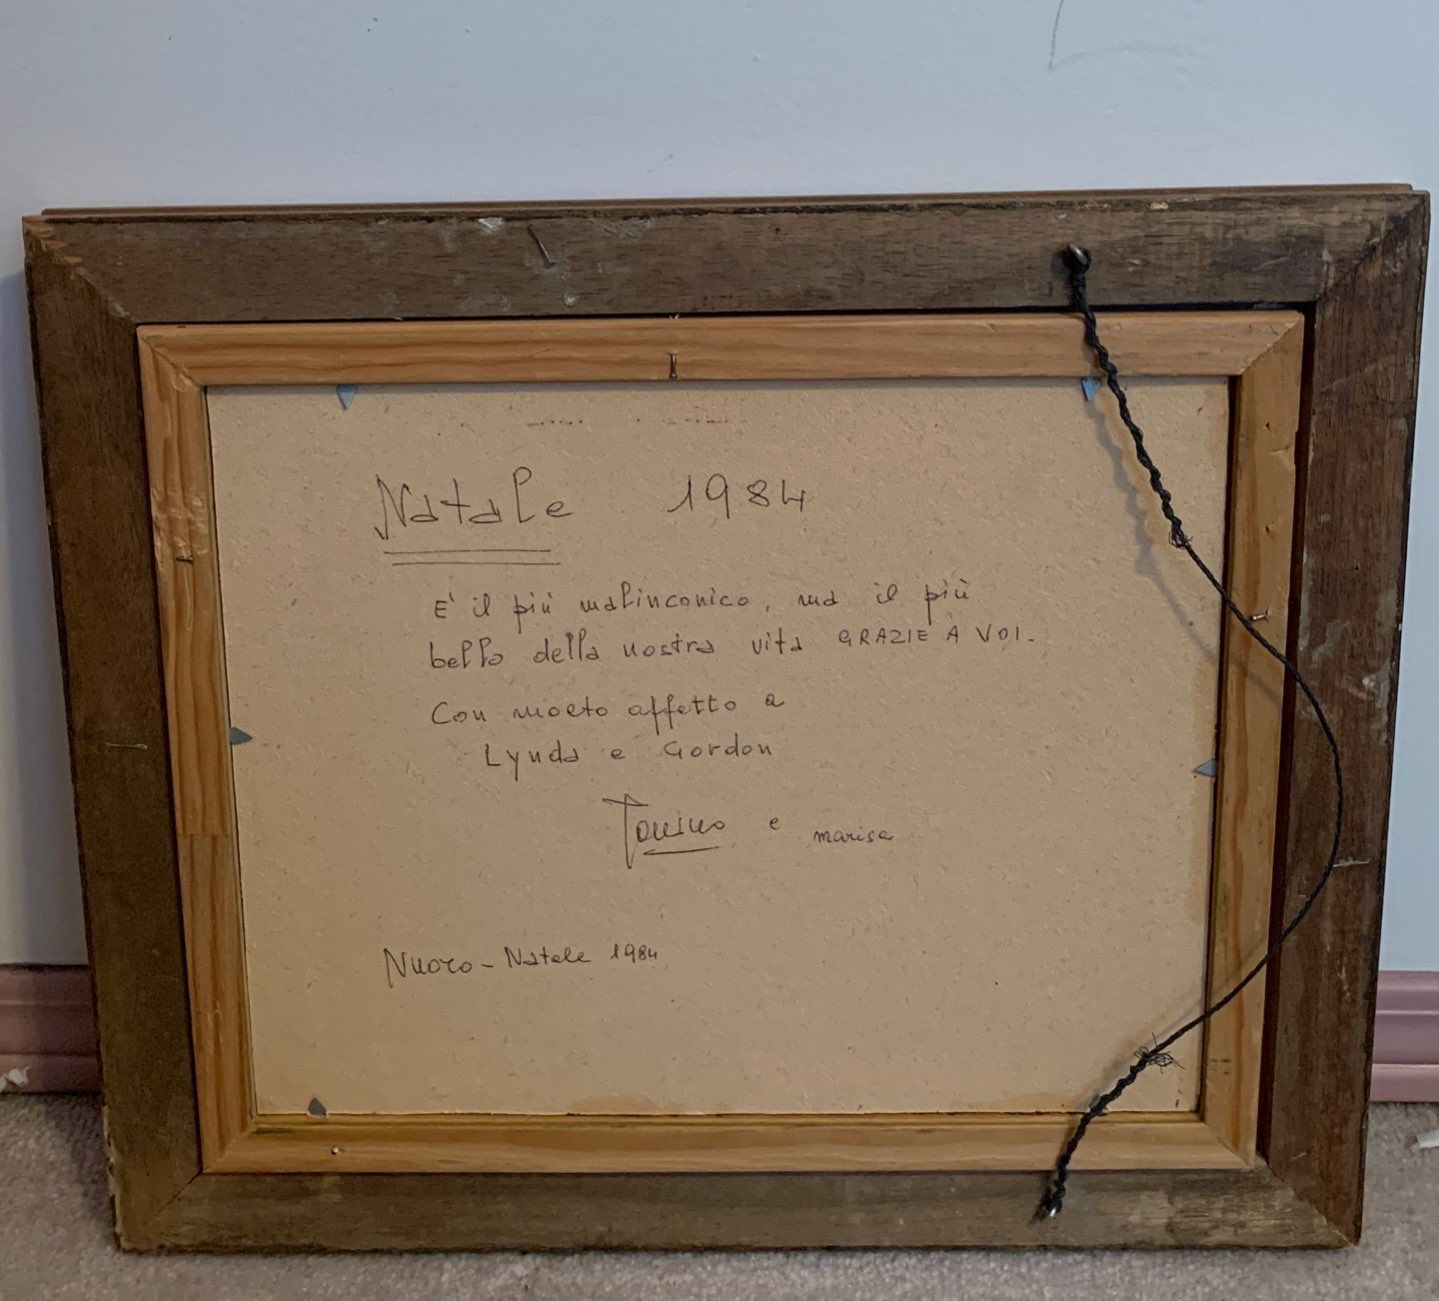 Natale 1984
E' il più malinconico, ma il più
bello della nostra vita GRAZIE A VOI.
Con molto affetto a
Lynda e Gordon
Tonino e marisa
Nuoro - Natale 1984